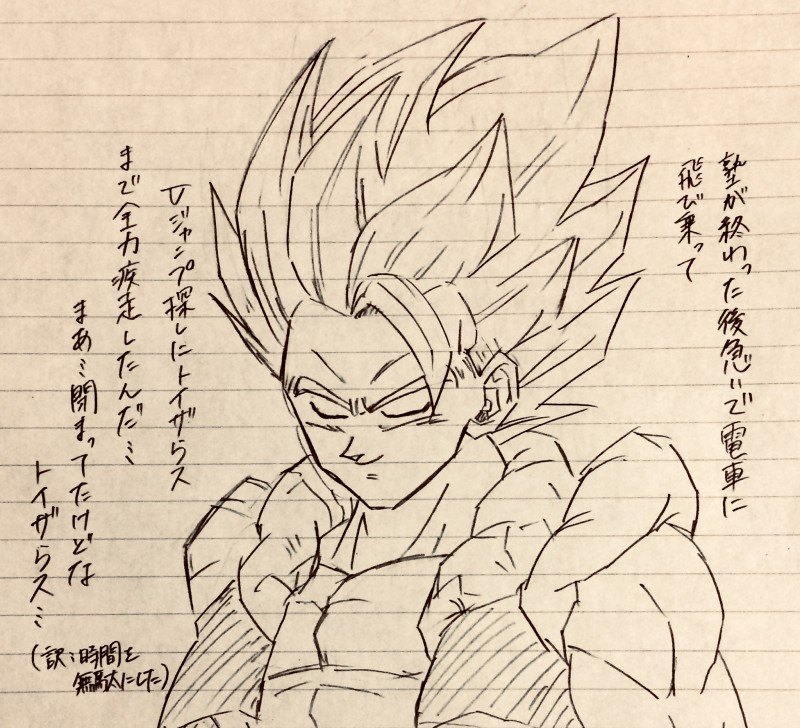 塾が終わった後急いで電車に
飛び乗って
Vジャンプ探しにトイザらス
まで全力疾走したんだ…
まあ…閉まってたけどな
トイザらス…
(訳:時間を
無駄にした)